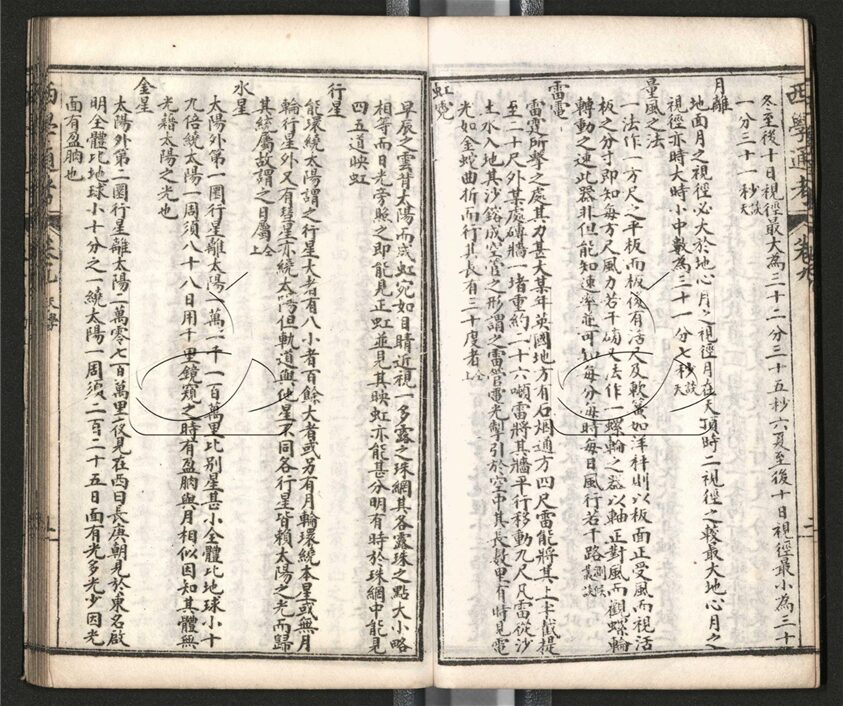 冬至後十日視徑最大為三十二分三十五秒六夏至後十日視徑最小為三十
一分三十一秒談天
月離
地面月之視徑必大於地心月之視徑月在天頂時二視徑之較最大地心月之
視徑亦時大時小中數為三十一分七秒談天
量風之法
一法作一方尺之平板而板後有活尺及軟簧如洋枰則以板面正受風而視活
板之分寸即知每方尺風力若干磅又法作一螺輪之器以軸正對風而觀螺輪
轉動之速此器非但能知速率並可知每分每時每日風行若干路
雷電
雷霆所擊之處其力甚大某年英國地方有石烟通方四尺雷能將其上半截提
至二十尺外某處磚牆一堵重約二十六噸雷將其牆平行移動九尺凡雷從沙
土水入地其沙鎔成空管之形謂之雷管電光掣引於空中其長數里有時見電
光如金蛇曲折而行其長有三十度者仝上
虹霓
早辰之雲背太陽而成虹宛如目睛近視一多露之珠網其各露珠之點大小略
相等而日光旁照之即能見正虹並見其映虹亦能甚分明有時於珠網中能見
四五道映虹
行星
能環繞太陽謂之行星大者有八小者百餘大者或另有月輪環繞本星或無月
輪行星外又有彗星亦繞太陽但軌道與他星不同各行星皆賴太陽之光而歸
其統屬故謂之日屬仝上
水星
太陽外第一圈行星離太陽一萬一千一百萬里比別星甚小全體比地球小十
九倍繞太陽一周須八十八日用千里鏡窺之時有盈朒與月相似因知其體無
光藉太陽之光也
金星
太陽外第二圈行星離太陽二萬零七百萬里夜見在西曰長庚朝見於東名啟
明全體比地球小十分之一繞太陽一周須二百二十五日面有光多光少因光
面有盈朒也
西學通考
卷九
天學